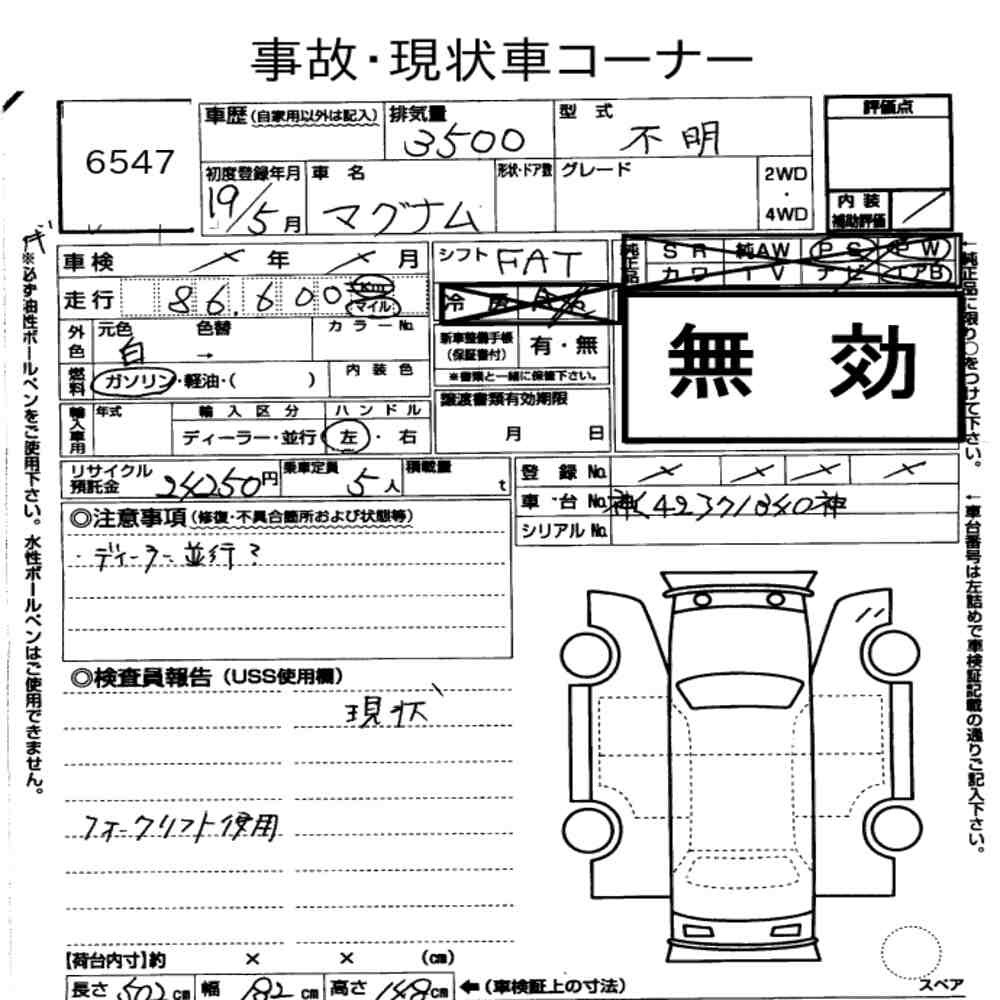 事故・現状車コーナー
6547
車歴 (自家用以外は記入)
排気量
3500
型 式
不明
評価点
初度登録年月
19/5月
車 名
マグナム
形状・ドア数
グレード
2WD
・
4WD
内 装
補助評価
車検 年 月
シフト FAT
純正品
S R 純AW P S P W
カワ T V ナビ エアB
走行 86,600 Km マイル
冷房
外色
元色 色替
白 →
カラーNo.
新車整備手帳
(保証書付)
有・無
※書類と一緒に保管下さい。
無 効
燃料
ガソリン・軽油・( )
内 装 色
輸入車用
年式
輸 入 区 分
ハ ン ド ル
ディーラー・並行
左・右
譲渡書類有効期限
月 日
リサイクル
預託金
24250円
乗車定員
5人
積載量
t
登 録 No.
車 台 No. 神く42371840神
シリアル No.
◎注意事項 (修復・不具合箇所および状態等)
・ディーラー並行?
◎検査員報告 (USS使用欄)
現状
フォークリフト使用
【荷台内寸】約 × × (cm)
長さ 502 cm 幅 182 cm 高さ 148 cm
←(車検証上の寸法)
スペア
※必ず油性ボールペンをご使用下さい。水性ボールペンはご使用できません。
←純正品に限り○をつけて下さい。
←車台番号は左詰めで車検証記載の通りご記入下さい。